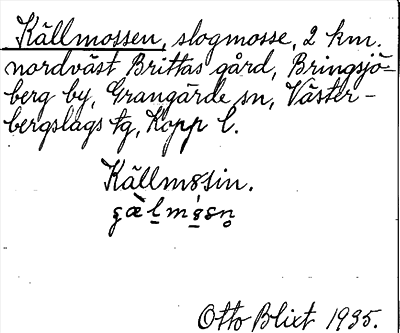 Källmossen, slogmosse, 2 km.
nordväst Brittas gård, Bringsjö-
berg by, Grangärde sn, Väster-
bergslags tg, Kopp l.
Källmósin.
Otto Blixt 1935.